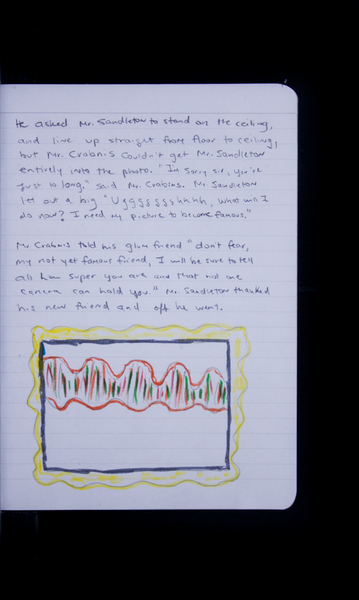 He asked Mr. Sandleton to stand on the ceiling,
and line up straight from floor to ceiling,
but Mr. Crabinis Couldn't get Mr. Sandleton
entirely into the photo. "I'm sorry sir, you're
just so long," said Mr. Crabins. Mr. Sandleton
let out a big "Uggggggghhhh, what will I
do now? I need my picture to become famous."
Mr Crabinis told his glum friend "don't fear,
my not yet famous friend, I will be sure to tell
all how super you are and that not one
camera can hold you." Mr. Sandleton thanked
his new friend and off he went.